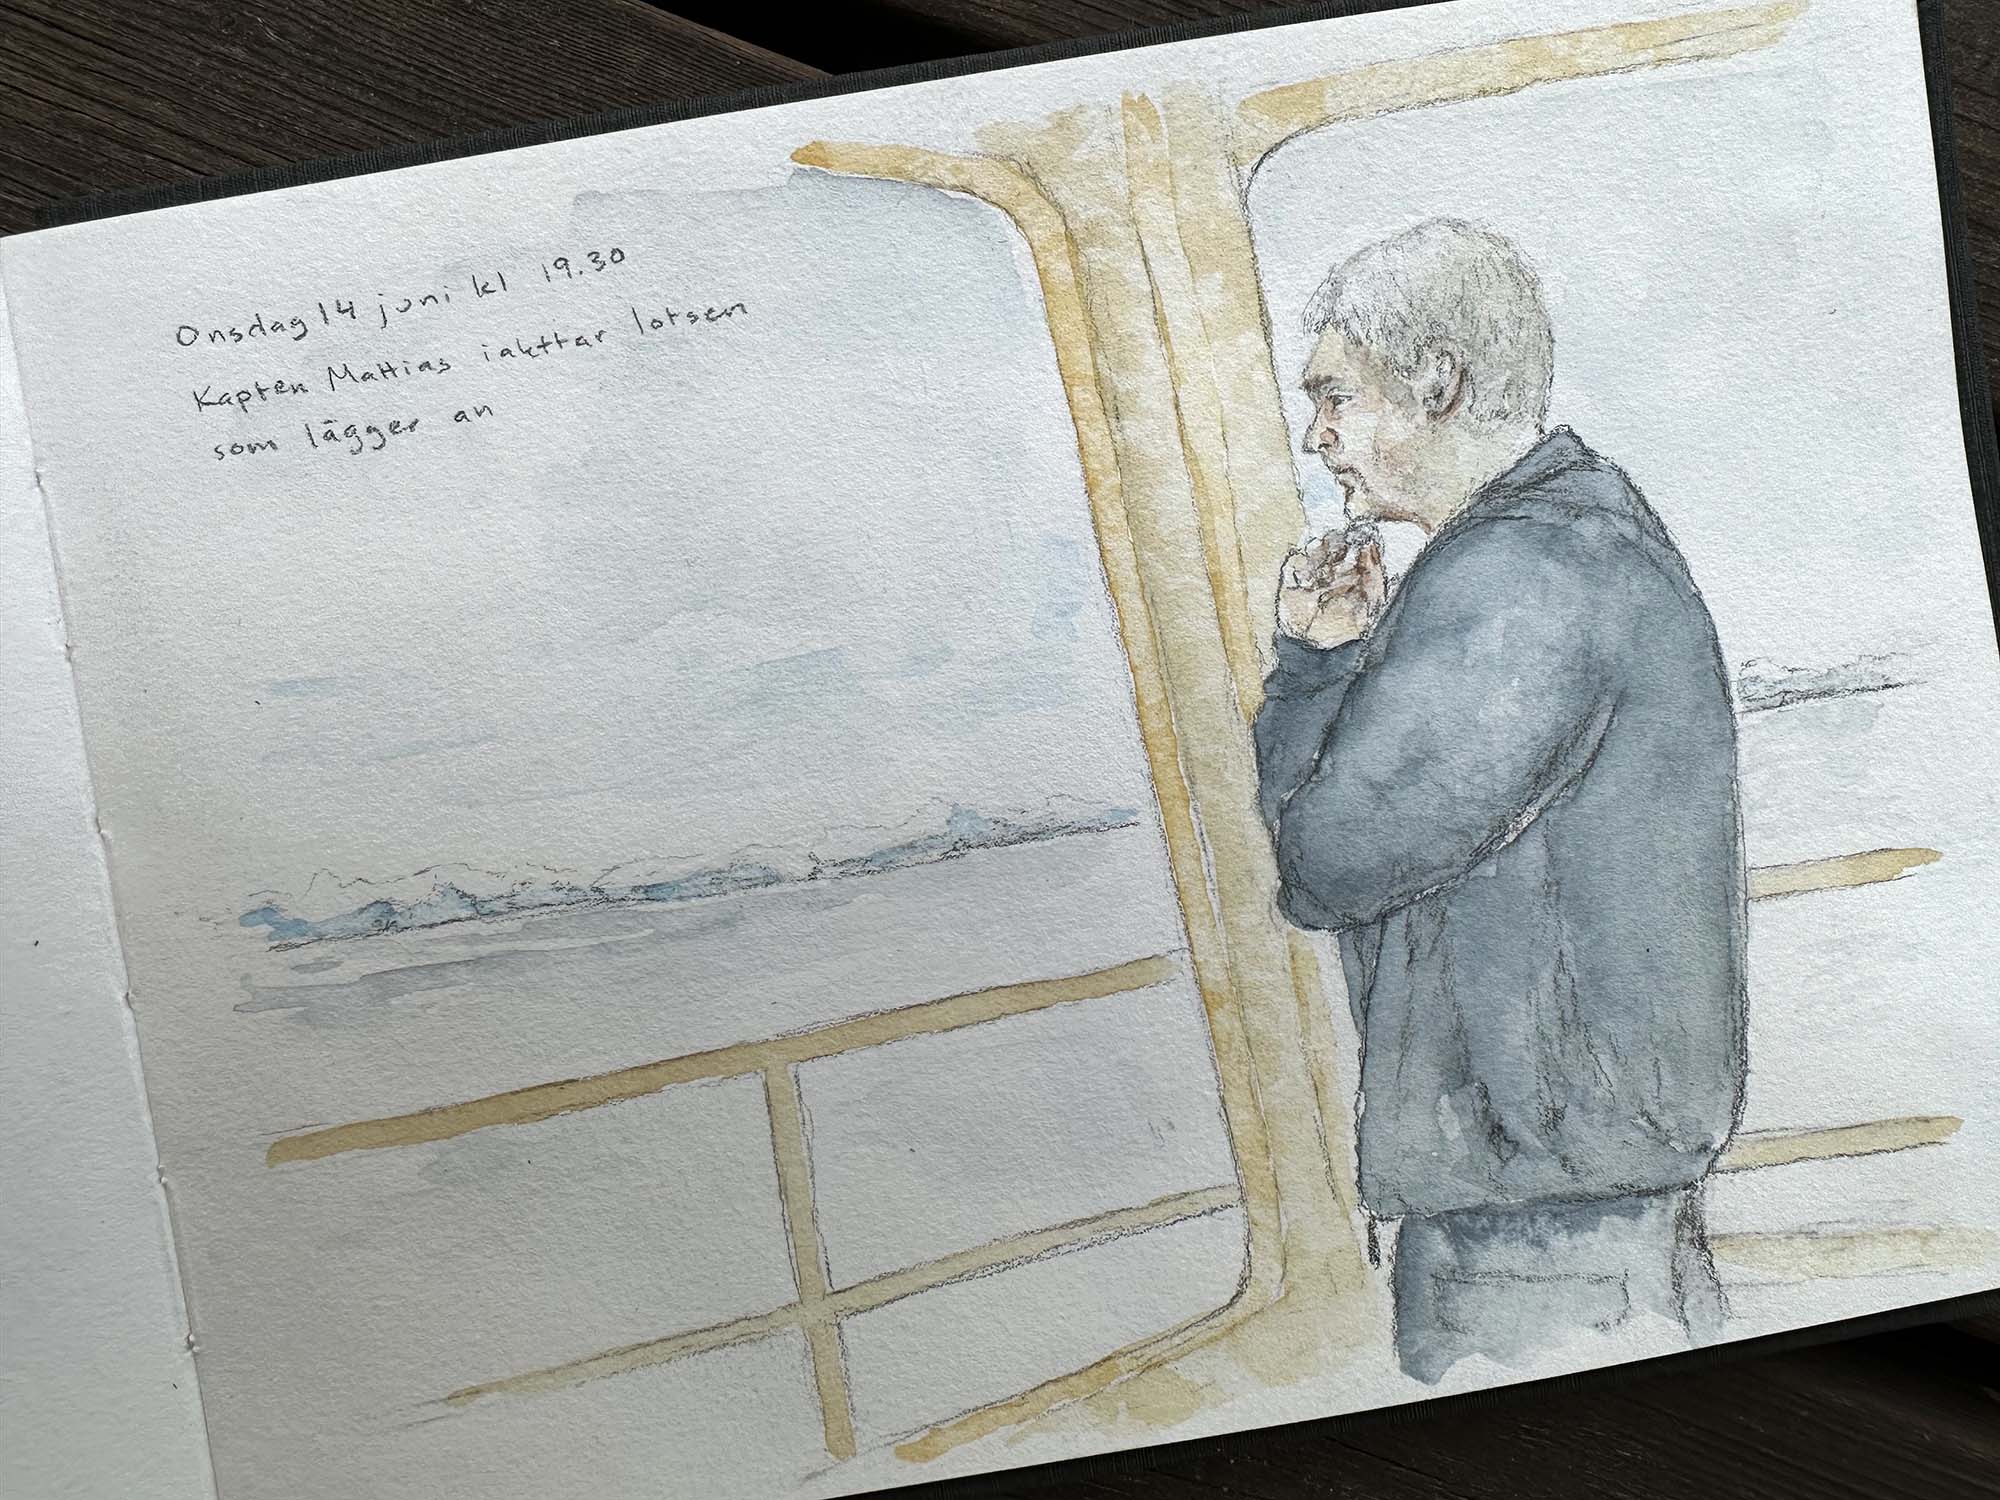 Onsdag 14 juni kl 19.30
Kapten Mattias iakttar lotsen
som lägger an